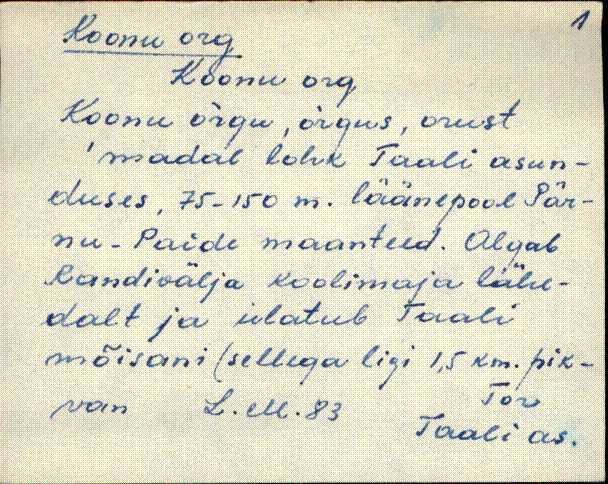 1
Koonu org
Koonu org
Koonu õrgu, õrgus, orust
'madal lohk Taali asun-
duses, 75-150 m. läänepool Pär-
nu-Paide maanteed. Algab
Kandivälja koolimaja lähe-
dalt ja ulatub Taali
mõisani (sellega ligi 1,5 km. pik-
van L. M. 83 Tor
Taali as.